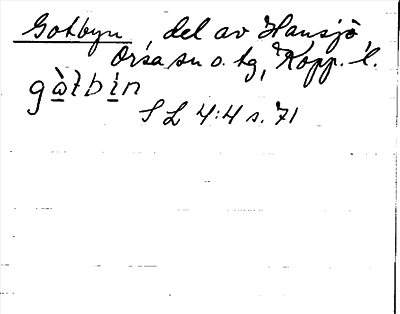 Gotbyn, del av Hansjö,
Orsa sn o. tg, Kopp. l.
gàtbin
S L 4:4 s. 71